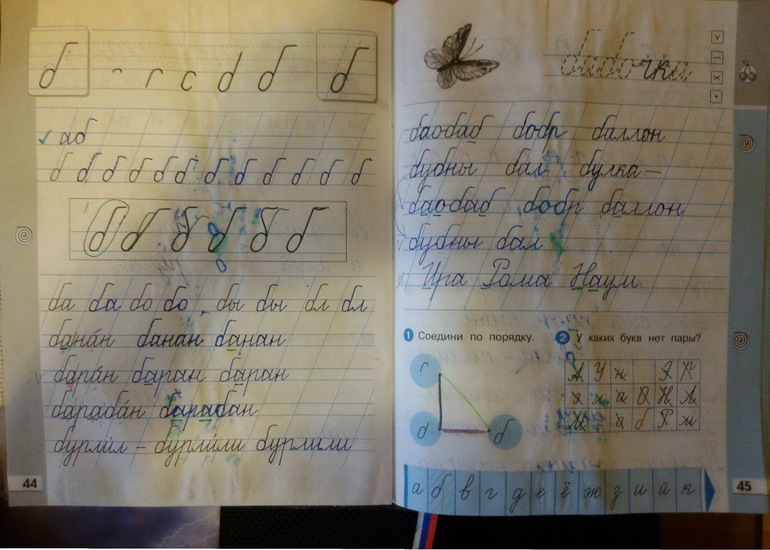 б б б б
аб
б б б б б б б б б б б б
б б б б б б
ба ба бо бо бы бы бл бл
банáн банан банан
барáн баран баран
барабáн барабан
бурлúл – бурлúли бурлили
44
бабочка
баобаб бобр баллон
бубны бал булка –
баобаб бобр баллон
бубны бал
Ира Рома Наум
1 Соедини по порядку.
2 У каких букв нет пары?
г
б
а б в г д е ё ж з и й к
45